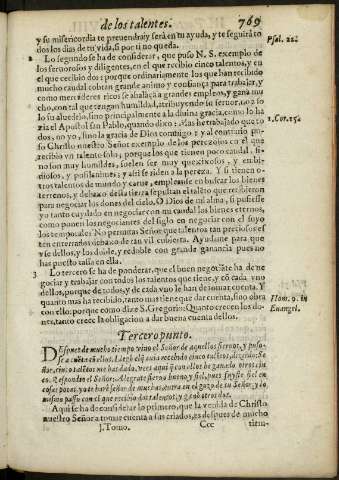 de los talentes. 769
y su misericordia te prevendrá y será en tu ayuda, y te seguirá to
dos los dias de tu vida, si por ti no queda.
Psal. 22.
2 Lo segundo se ha de considerar, que puso N. S. exemplo de
los feruorosos y diligentes, en el que recibio cinco talentos, y en
el que recibio dos: porque ordinariamente los que han recibido
mucho caudal cobran grande animo y confiança para trabajar, y
como mercaderes ricos se abalãçã a grandes empleos, y ganã mu
cho, con tal que tengan humildad, atribuyendo su no a so
lo su aluedrio, sino principalmente a la diuina gracia, como lo ha
zia el Apostol san Pablo, quando dixo: Mas he trabajado que to
1. Cor. 15.
dos, no yo, sino la gracia de Dios conmigo: y al contrario pu-
so Christo nuestro Señor exemplo de los perezosos en el que
recibio vn talento solo, porque los que tienen poco caudal, si
no son muy humildes, suelen ser muy quexixosos, y en bi
diosos, y pusilanimes; y assi se rinden a la pereza. Y si tienen o-
tros talentos de mundo y carne, emplease en buscar los bienes
terrenos, y debaxo desta tierra sepultan el talẽto que recibieron
para negociar los dones del cielo. O Dios de mi alma, si pusiesse
yo tanto cuydado en negociar con mi caudal los bienes eternos,
como ponen los negociantes del siglo en negociar con el suyo
los temporales! No permitas Señor que talentos tan preciosos es
ten enterrados debaxo de tan vil cubierta. Ayudame para que
vse dellos, y los doble, y redoble con grande ganancia pues no
has puesto tassa en ella.
3 Lo tercero se ha de ponderar, que el buen negociãte ha de ne
gociar y trabajar con todos los talentos que tiene, y cõ cada vno
dellos, porque de todos, y de cada vno le han de tomar cuenta. Y
quanto mas ha recibido, tanto mas tiene que dar cuenta, sino obra
con ello: porque como dize S. Gregorio: Quanto crecen los do-
Hom. 9. in
Euangel.
nes, tanto crece la obligacion a dar buena cuenta dellos.
Tercero punto.
DEspues de mucho tiempo vino el Señor de aquellos sieruos, y puso-
se a cuẽta cõ ellos. Llegò el q̃ auia recebido cinco talẽtos, diziendo: Se
ñor, cinco talẽtos me has dado, vees aqui q̃ con ellos he ganado otros cin
co. Respondio el Señor: Alegrate sieruo bueno y fiel, pues fuyste fiel en
cosas pocas, yo te harè señor de muchas, entra en el gozo de tu Señor, y lo
mismo passò con el que recibio dos talentos, y ganò otros dos.
Aqui se ha de considerar lo primero, que la venida de Christo
nuestro Señor a tomar cuenta a sus criados, es despues de mucho
I. Tomo. Ccc tiem-